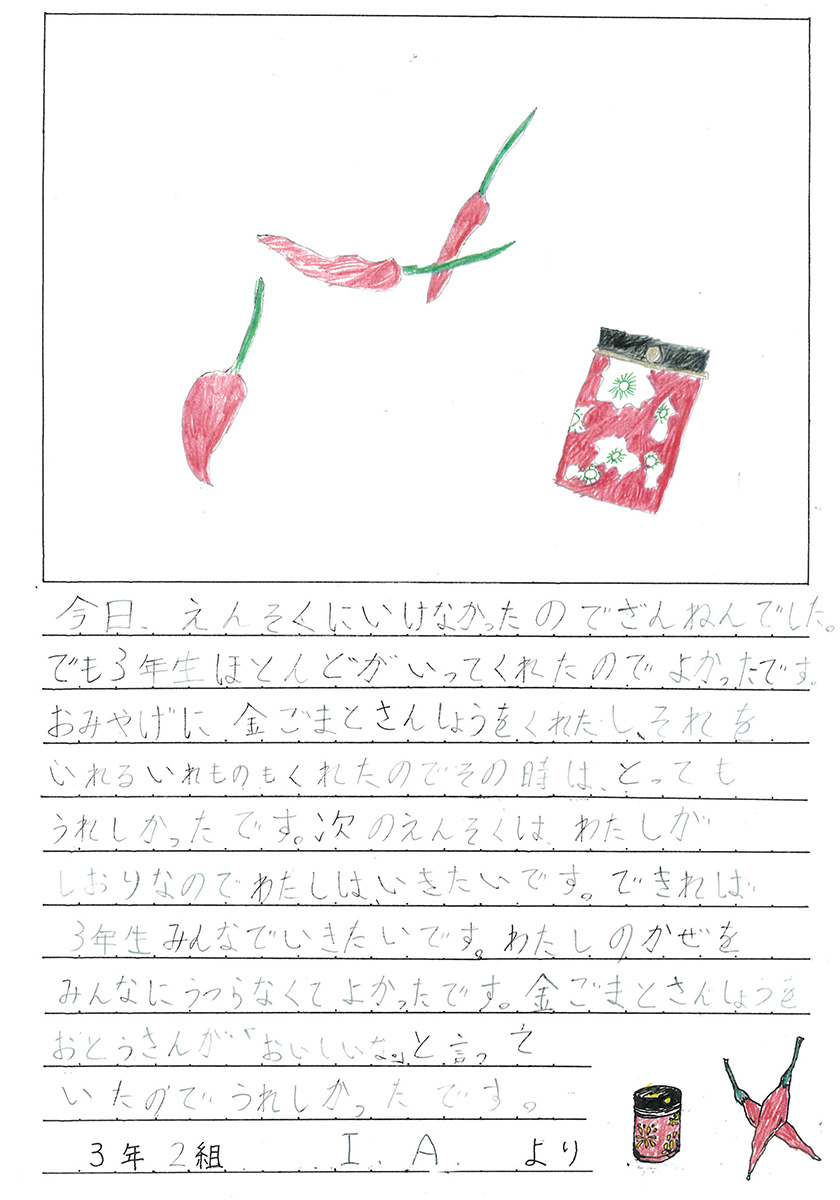 今日、えんそくにいけなかったのでざんねんでした。
でも3年生ほとんどがいってくれたのでよかったです。
おみやげに金ごまとさんしょうをくれたし、それを
いれるいれものもくれたのでその時は、とっても
うれしかったです。次のえんそくは、わたしが
しおりなのでわたしは、いきたいです。できれば
3年生みんなでいきたいです。わたしのかぜを
みんなにうつらなくてよかったです。金ごまとさんしょうを
おとうさんが「おいしいな。」と言って
いたのでうれしかったです。
3年2組 I.A. より